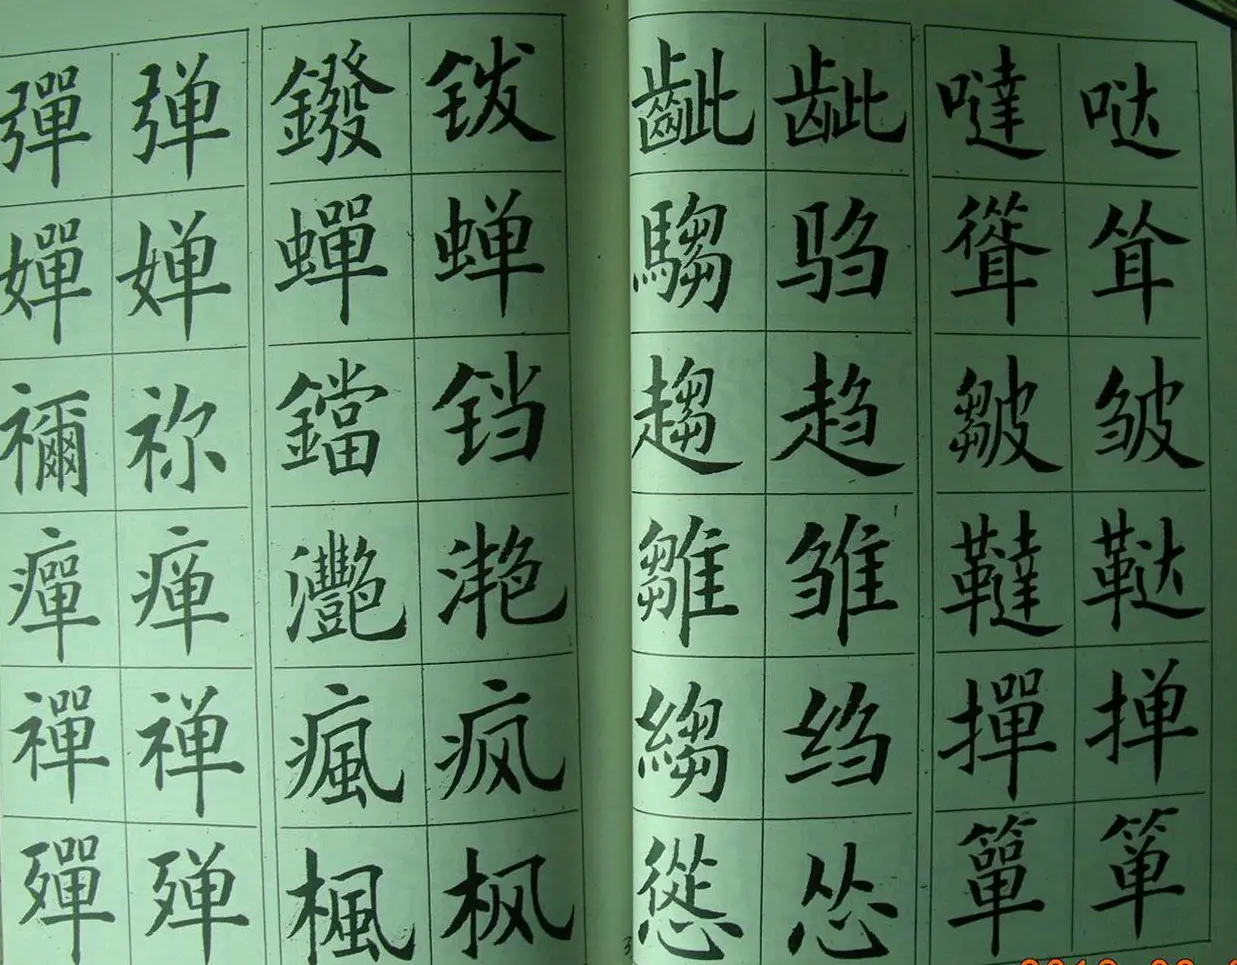 彈 弹 鏺 䥽
嬋 婵 蟬 蝉
禰 祢 鐺 铛
癉 瘅 灧 滟
禪 禅 瘋 疯
殫 殚 楓 枫
齜 龇 噠 哒
騶 驺 聳 耸
趨 趋 皺 皱
雛 雏 韃 鞑
縐 绉 撣 掸
慫 怂 簞 箪